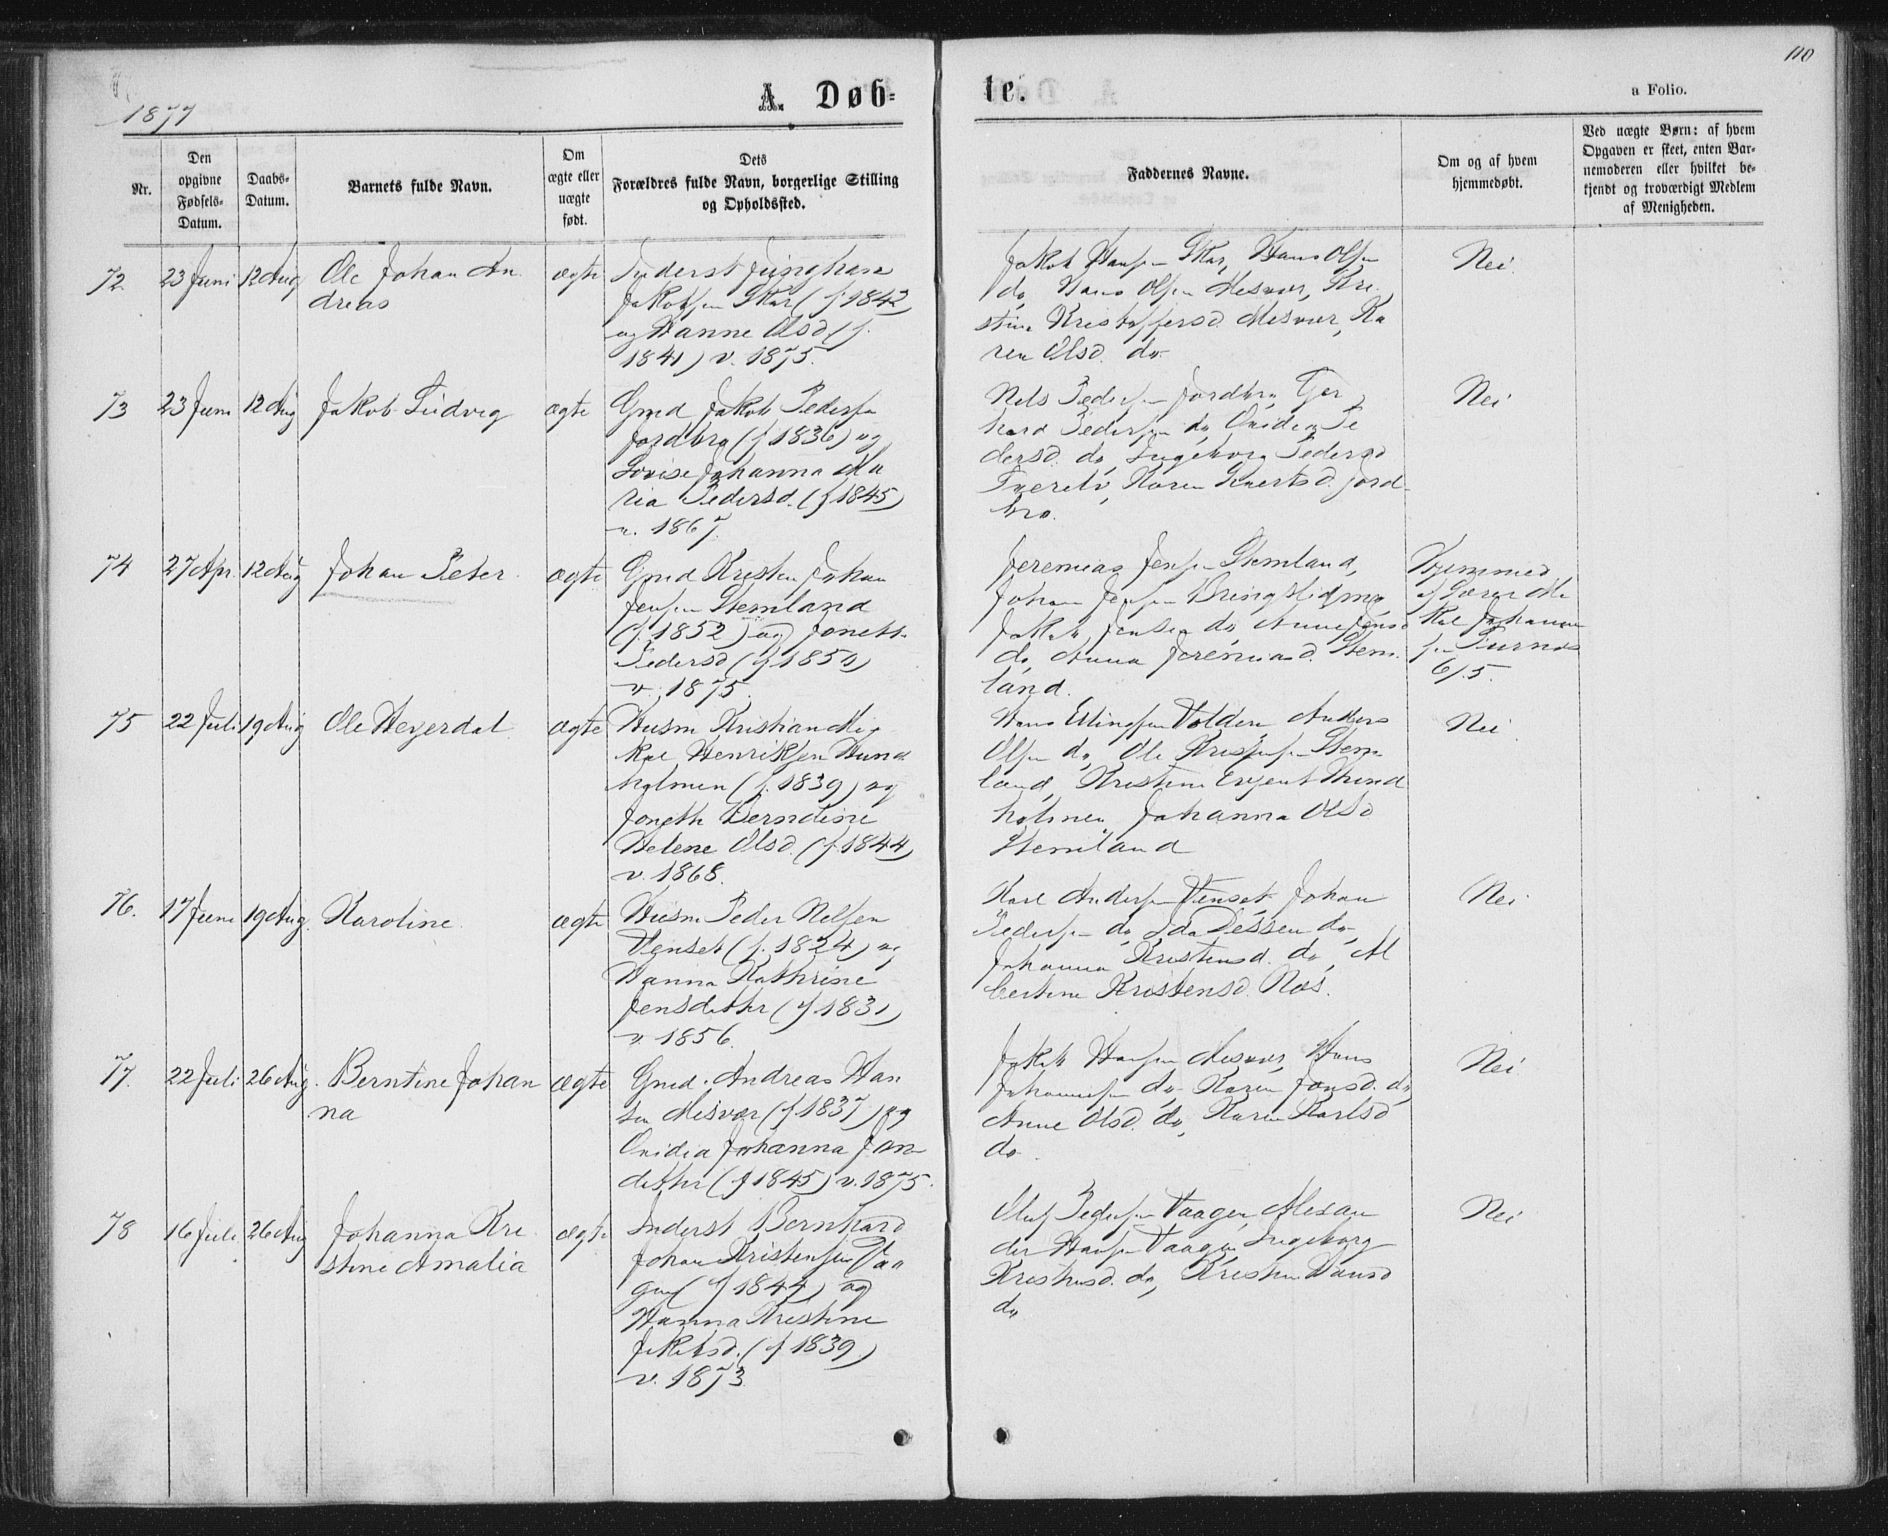 110
1877
A. Døb-
te.
a Folio.
Nr.
Den
opgivne
Fødsels-
Datum.
Daabs-
Datum.
Barnets fulde Navn.
Om
ægte eller
uægte
født.
Dets
Forældres fulde Navn, borgerlige Stilling
og Opholdssted.
Faddernes Navne.
Om og af hvem
hjemmedøbt.
Ved uægte Børn: af hvem
Opgaven er skeet, enten Bar-
nemoderen eller hvilket be-
kjendt og troværdigt Medlem
af Menigheden.
72
23 Juni
12 Aug
Ole Johan An
dreas
ægte
Inderst Junghans
Jakobsen Skar (f. 1842
og Hanne Olsd (f.
1841) v. 1875.
Jakob Hansen Skar, Hans Olsen
do, Hans Olsen Mesvær, Kri
stine Kristoffersd. Mesvær, Ka
ren Olsd. do
Nei
73
23 Juni
12 Aug
Jakob Ludvig
ægte
Gmd Jakob Peders
Jordbro (f 1836) og
Lovise Johanna Ma
ria Pedersd. (f 1845)
v. 1867.
Nels Pedersen Jordbro, Ger
hard Pedersen do, Ovidia Pe
dersd. do, Ingeborg Pedersd
Karen Jord
bro.
Nei
74
27 Apr.
12 Aug
Johan Peter
ægte
Gmd Kristen Johan
Jensen Stemland
(f. 1852) og Joneth
Pedersd (f 1850)
v. 1875.
Jeremias Jensen Stemland,
Johan Jensen
Jakob Jensen do, Anne Jensd
do, Anna Jeremiasd. Stem
land.
Hjemmed.
af Søren Mi
kal Johanne
sen
6/5.
75
22 Juli
19 Aug
Ole Heyerdal
ægte
Husm Kristian Mi
kal Henriksen Hund
holmen (f. 1839) og
Joneth Berndine
Helene Olsd. (f. 1844)
v. 1868.
Hans Ellingsen Volden, Anders
Olsen do, Ole Stem
land, Kristine Hund
holmen Johanna Olsd
Stemland
Nei
76.
17 Juni
19 Aug.
Karoline
ægte
Husm Peder Nelsen
Venset (f. 1824) og
Hanna Kathrine
Jensdatter (f 1831)
v. 1856.
Karl Andersen Venset, Johan
Pedersen do, Ida Dessen do,
Johanna Kristensd. do, Al
bertine Kristensd. Næs.
Nei
77.
22 Juli
26 Aug.
Berntine Johan
na
ægte
Gmd. Andreas Han
sen Mesvær (f 1837) og
Ovidia Johanna Jons
datter (f 1845) v. 1875.
Jakob Hansen Mesvær, Hans
Johannesen do, Karen Jonsd. do,
Anne Olsd. do, Karen Karlsd
do.
Nei
78
16 Juli
26 Aug
Johanna Kri
stine Amalia
ægte
Inderst Bernhard
Johan Kristensen Vaa
gen (f 1844) og
Hanna Kristine
Jakobsd. (f 1839)
v. 1873
Oluf Pedersen Vaagen, Alexan
der Hansen Vaagen, Ingeborg
Kristensd. do, Kristine Hansd
do
Nei